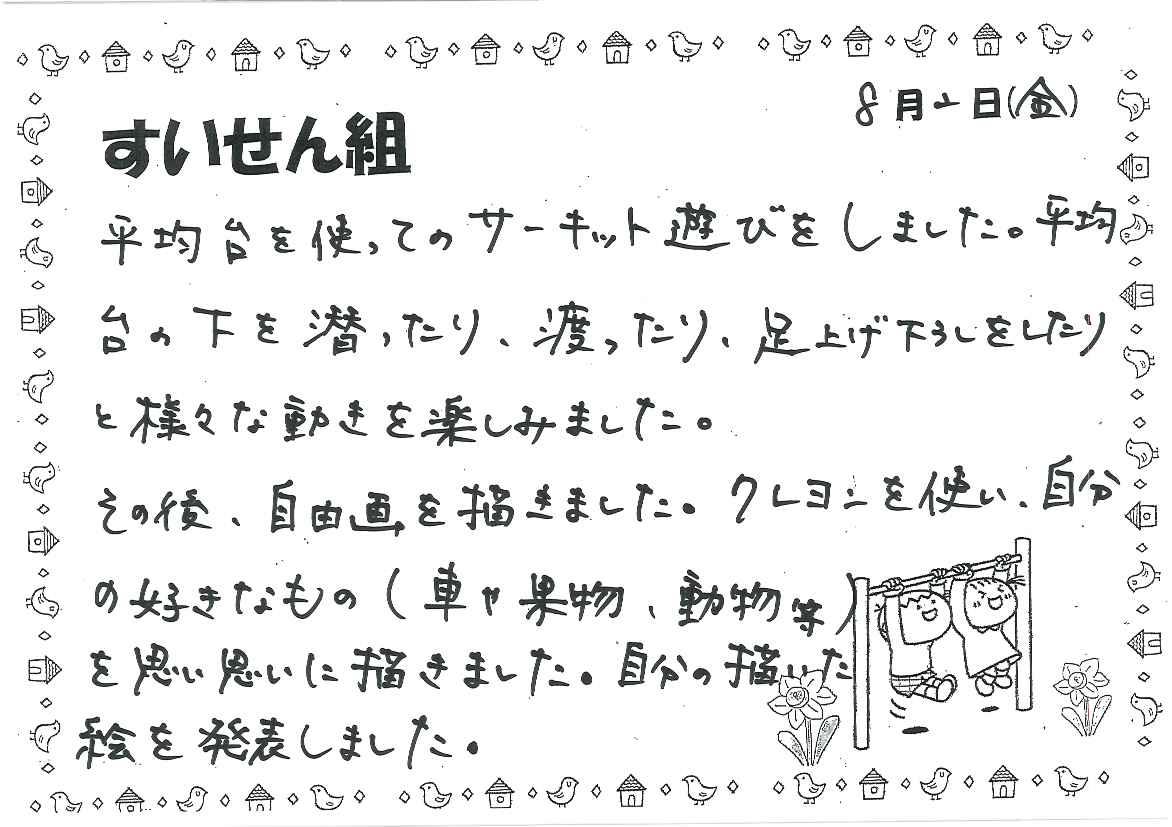 8月1日(金)
すいせん組
平均台を使ってのサーキット遊びをしました。平均
台の下を潜ったり、渡ったり、足上げ下ろしをしたり
と様々な動きを楽しみました。
その後、自由画を描きました。クレヨンを使い、自分
の好きなもの(車や果物、動物等)
を思い思いに描きました。自分の描いた
絵を発表しました。